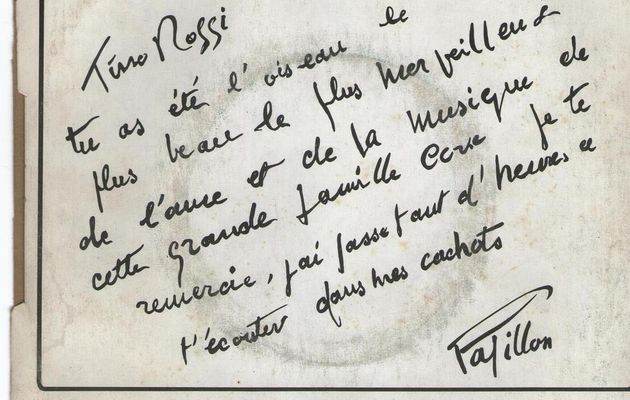 Tino Rossi
tu as été l'oiseau le
plus beau le plus merveilleux
de l'ame et de la musique de
cette grande famille Corse je te
remercie, j'ai passé tant d'heures a
t'écouter dans mes cachots
Papillon